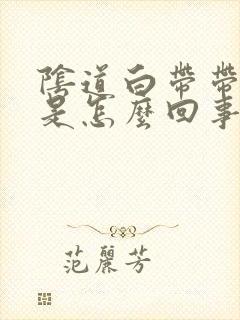 陰道白帶帶
是怎麼回事
范麗芳